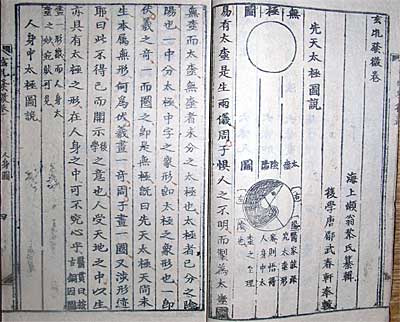 玄牝發微卷
海上嬾翁黎氏纂輯
後學唐郿武春軒奉較
先天太極圖說
無極圖
太極陰陽圖
易有太壺是生兩儀周子懼人之不明而製為太壺圖
無壺而太壺無壺者未分之太極也太極者已分之陰
陽也一中分太極中字之象形即太極之象形也一即
伏羲之奇一而圈之即是無極既曰先天太極天尚未
生本屬無形何為伏羲畫一奇周子畫一圈又涉形滯
耶曰此不得已而開示後學之意也人受天地之中以生
亦具有太極之形在人身之中可不究心乎
人身中太極圖說
玄牝發微卷
人身圖
四